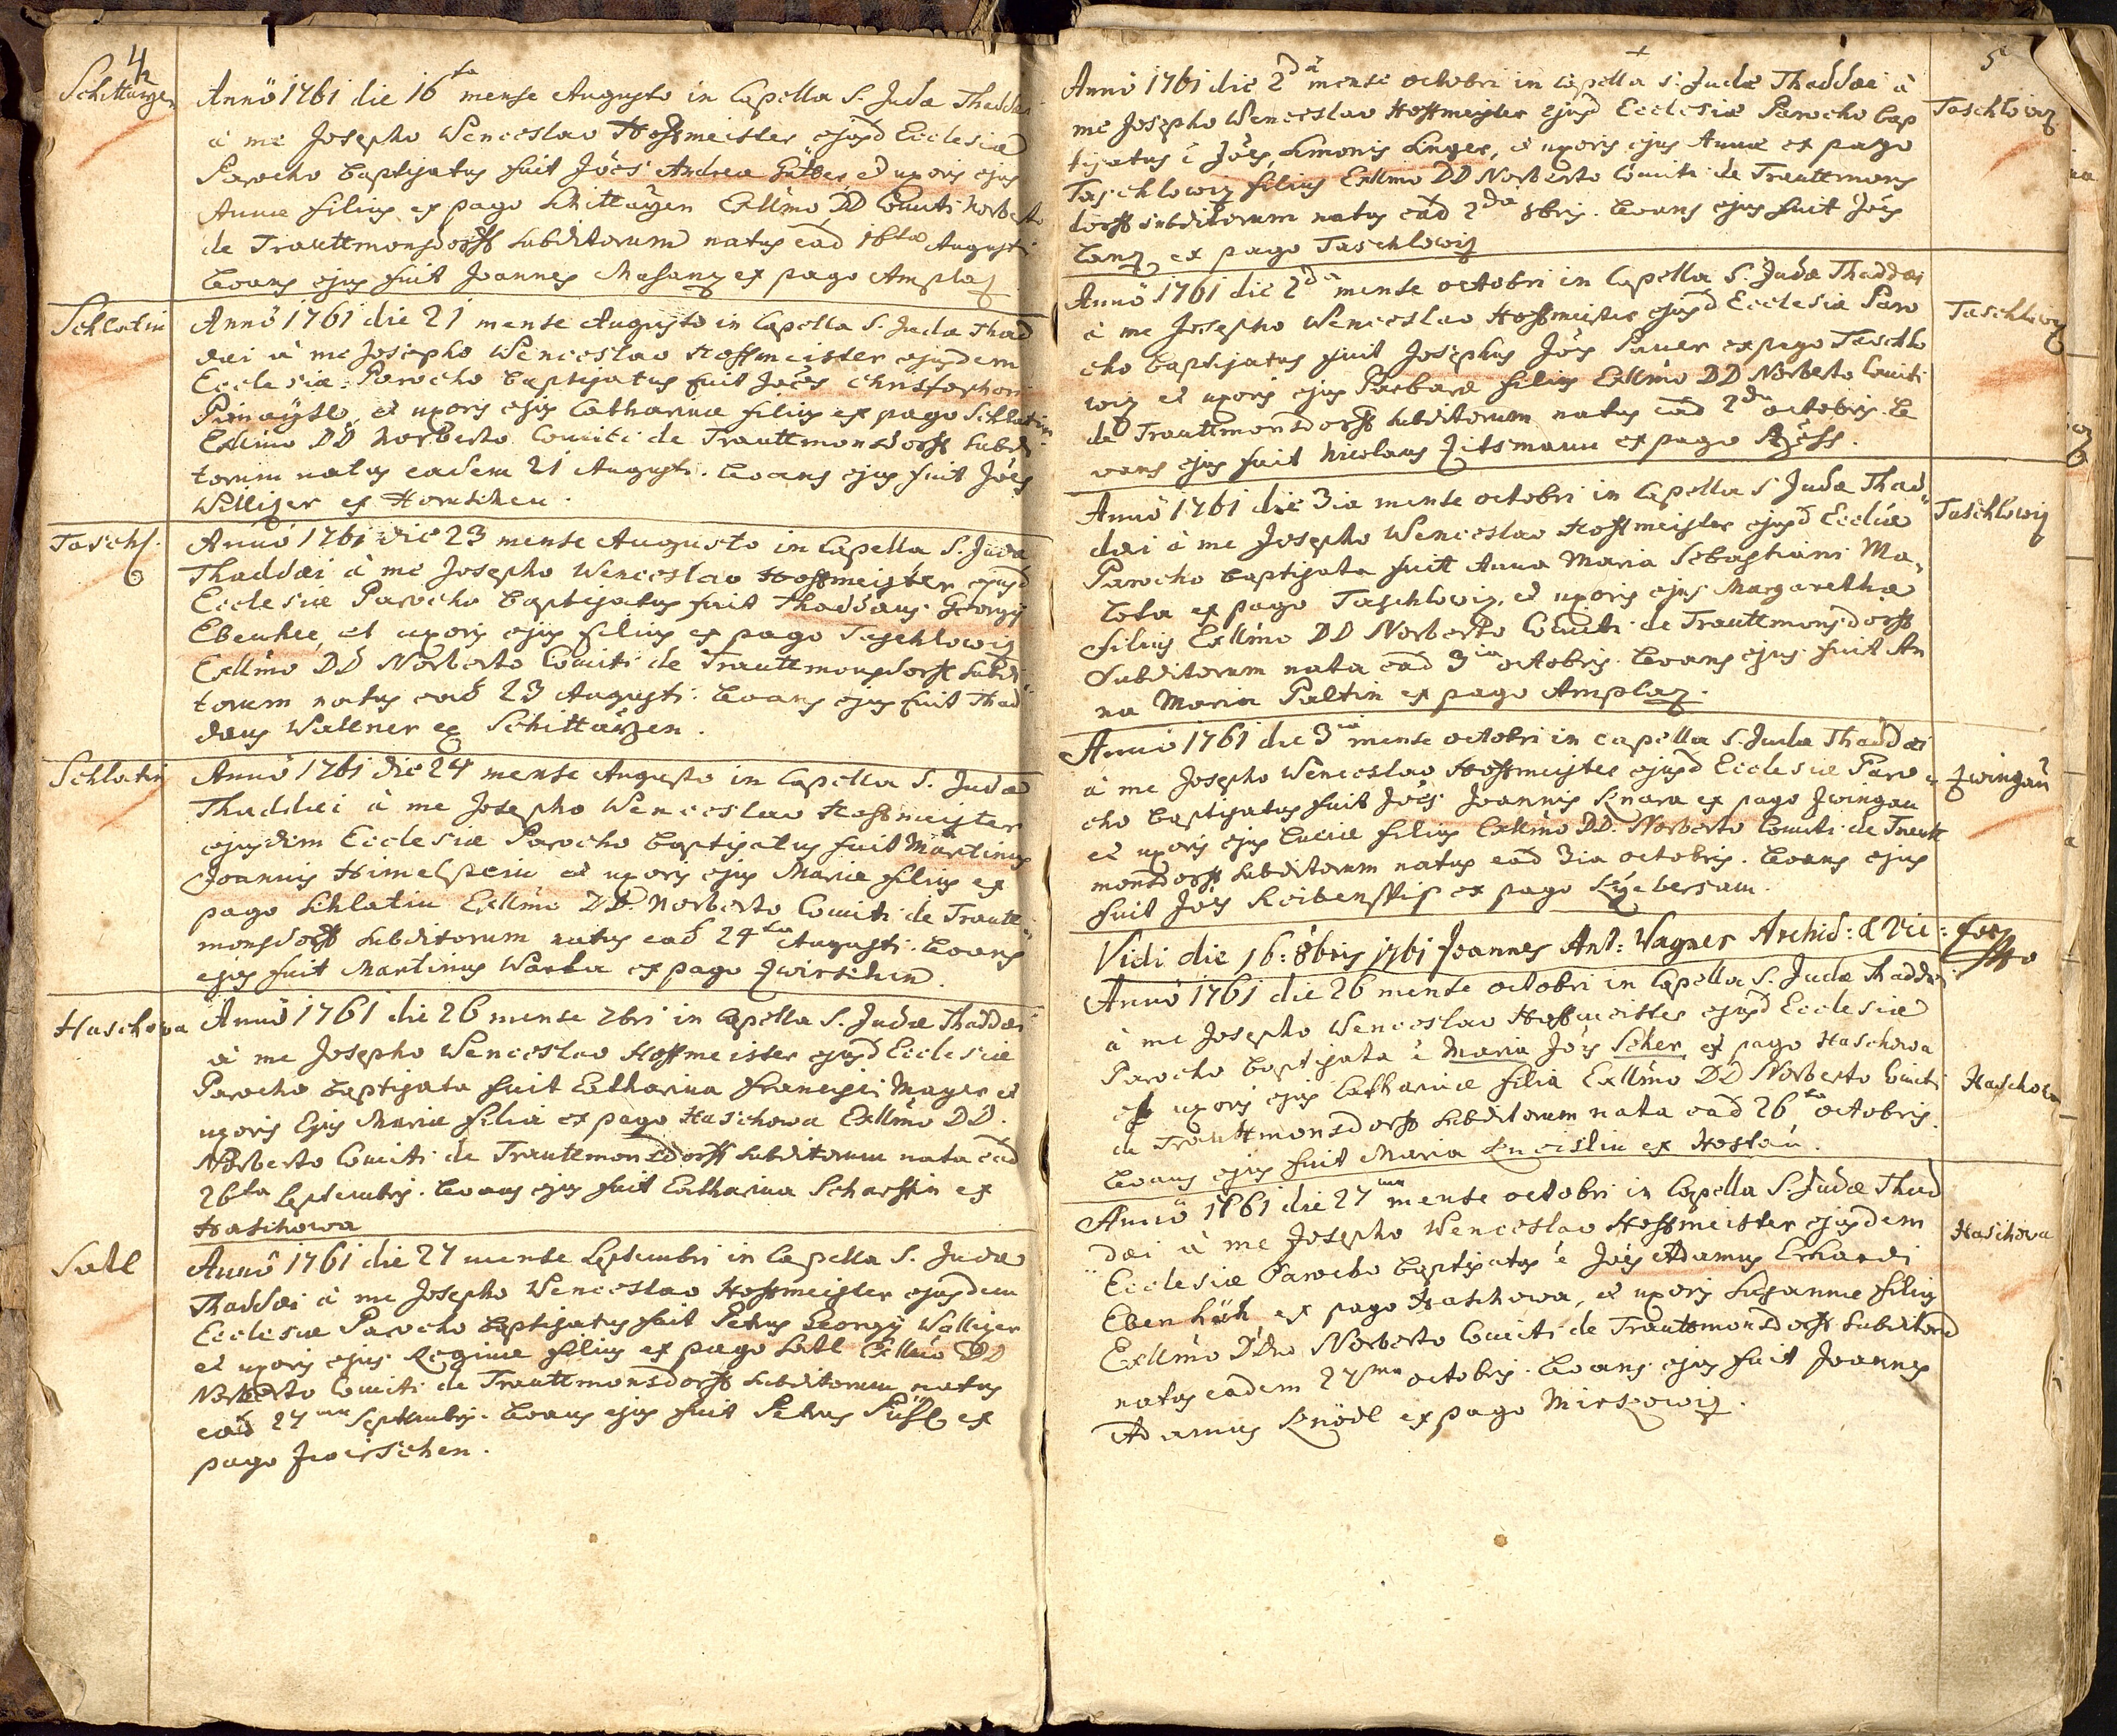 4
Schittarzen
Anno 1761 die 16ta mense Augusto in Capella S. Judæ Thaddæi
à me Josepho Wenceslao Hoffmeister ejusd Ecclesiæ
Parocho baptizatus fuit Joës Andreæ et uxoris ejus
Annæ filius ex pago Schittarzen Exllmo DD Comiti Norberto
de Trauttmonsdorff subditorum natus eâd 16ta Augusti
Levans ejus fuit Joannes Masanz ex pago Amplaz
Schlatin
Anno 1761 die 21 mense Augusto in Capella S. Judæ Thad
dæi à me Josepho Wenceslao Hoffmeister ejusdem
Ecclesiæ Parocho baptizatus fuit Joës Christophori
et uxoris ejus Catharinæ filius ex pago Schlatin
Exllmo DD Norberto Comiti de Trauttmonsdorff subdi
torum natus eadem 21 Augusti. Levans ejus fuit Joës
Williger ex
Taschl.
Anno 1761 die 23 mense Augusto in Capella S. Judæ
Thaddæi à me Josepho Wenceslao Hoffmeister ejusd
Ecclesiæ Parocho baptizatus fuit Thaddæus Georgÿ
et uxoris ejus filius ex pago Taschlowiz
Exllmo DD Norberto Comiti de Trauttmonsdorff subdi
torum natus eâd 23 Augusti. Levans ejus fuit Thad
dæus Wallner ex Schittarzen.
Schlatin
Anno 1761 die 24 mense Augusto in Capella S. Judæ
Thaddæi à me Josepho Wenceslao Hoffmeister
ejusdem Ecclesiæ Parocho baptizatus fuit Martinus
Joannis Himelstein et uxoris ejus Mariæ filius ex
pago Schlatin Exllmo DD. Norberto Comiti de Trautt
monsdorff subditorum natus eâd 24ta Augusti. Levans
ejus fuit Martinus ex pago Zwirschen.
Haschowa
Anno 1761 die 26 mense 7bri in Capella S. Judæ Thaddæi
à me Josepho Wenceslao Hoffmeister ejusd Ecclesiæ
Parocho baptizata fuit Catharina Francisci Mayer et
uxoris Ejus Mariæ filia ex pago Haschowa Exllmo DD.
Norberto Comiti de Trauttmonsdorff subditorum nata eâd
26ta Septembris. Levans ejus fuit Catharina Scharffin ex
Haschowa
Satl
Anno 1761 die 27 mense Septembri in Capella S. Judæ
Thaddæi à me Josepho Wenceslao Hoffmeister ejusdem
Ecclesiæ Parocho baptizatus fuit Petrus Georgÿ Walliger
et uxoris ejus Reginæ filius ex pago Satl Exllmo DD
Norberto Comiti de Trauttmonsdorff subditorum natus
eâd 27ma Septembris. Levans ejus fuit Petrus ex
pago Zwirschen.
5
Anno 1761 die 2dâ mense octobri in Capella S. Judæ Thaddæi à
me Josepho Wenceslao Hoffmeister ejusd Ecclesiæ Parocho bap
tizatus é Joës, Simonis Singer, et uxoris ejus Annæ ex pago
Taschlowiz filius Exllmo DD Norberto Comiti de Trauttmons
dorff subditorum natus eâd 2da 8bris. Levans ejus fuit Joës
Lanz ex pago Taschlowiz
Taschlowiz
Anno 1761 die 2da mense octobri in Capella S. Judæ Thaddæi
à me Josepho Wenceslao Hoffmeister ejusd Ecclesiæ Paro
cho baptizatus fuit Josephus Joës ex pago Taschlo
wiz et uxoris ejus Barbaræ filius Exllmo DD Norberto Comiti
de Trauttmonsdorff subditorum natus eâd 2da octobris. Le
vans ejus fuit Nicolaus Zitsmann ex pago
Taschlowiz
Anno 1761 die 3ia mense octobri in Capella S Judæ Thad
dæi à me Josepho Wenceslao Hoffmeister ejusd Eccliæ
Parocho baptizata fuit Anna Maria Sebastiani Ma
ex pago Taschlowiz, et uxoris ejus Margarethæ
filius Exllmo DD Norberto Comiti de Trauttmonsdorff
subditorum nata eâd 3ia octobris. Levans ejus fuit An
na Maria Paltin ex pago Amplaz.
Taschlowiz
Anno 1761 die 3ia mense octobri in capella S. Judæ Thaddæi
à me Josepho Wenceslao Hoffmeister ejusd Ecclesiæ Paro
cho baptizatus fuit Joës Joannis Knara ex pago Zwingau
et uxoris ejus Luciæ filius Exllmo DD. Norberto Comiti de Trautt
monsdorff subditorum natus eâd 3ia octobris. Levans ejus
fuit Joës ex pago
Zwingau
Vidi die 16: 8bris 1761 Joannes Ant: Wagner Archid: & Vic: For:
Anno 1761 die 26 mense octobri in Capella S. Judæ Thaddæi
à me Josepho Wenceslao Hoffmeister ejusd Ecclesiæ
Parocho baptizata é Maria Joïs Scher ex pago Haschowa
et uxoris ejus Catharinæ filia Exllmo DD Norberto Comiti
de Trauttmonsdorff subditorum nata eâd 26ta octobris.
Levans ejus fuit Maria ex Hostau.
Haschowa
Anno 1761 die 27ma mense octobri in Capella S. Judæ Thad
dæi à me Josepho Wenceslao Hoffmeister ejusdem
Ecclesiæ Parocho baptizatus é Joës Adamus Erhardi
Eben ex pago Haschowa, et uxoris Susannæ filius
Exllmo DDno Norberto Comiti de Trauttmonsdorff subditorū
natus eadem 27ma octobris. Levans ejus fuit Joannes
Adamus Knödl ex pago Mirkowiz.
Haschowa